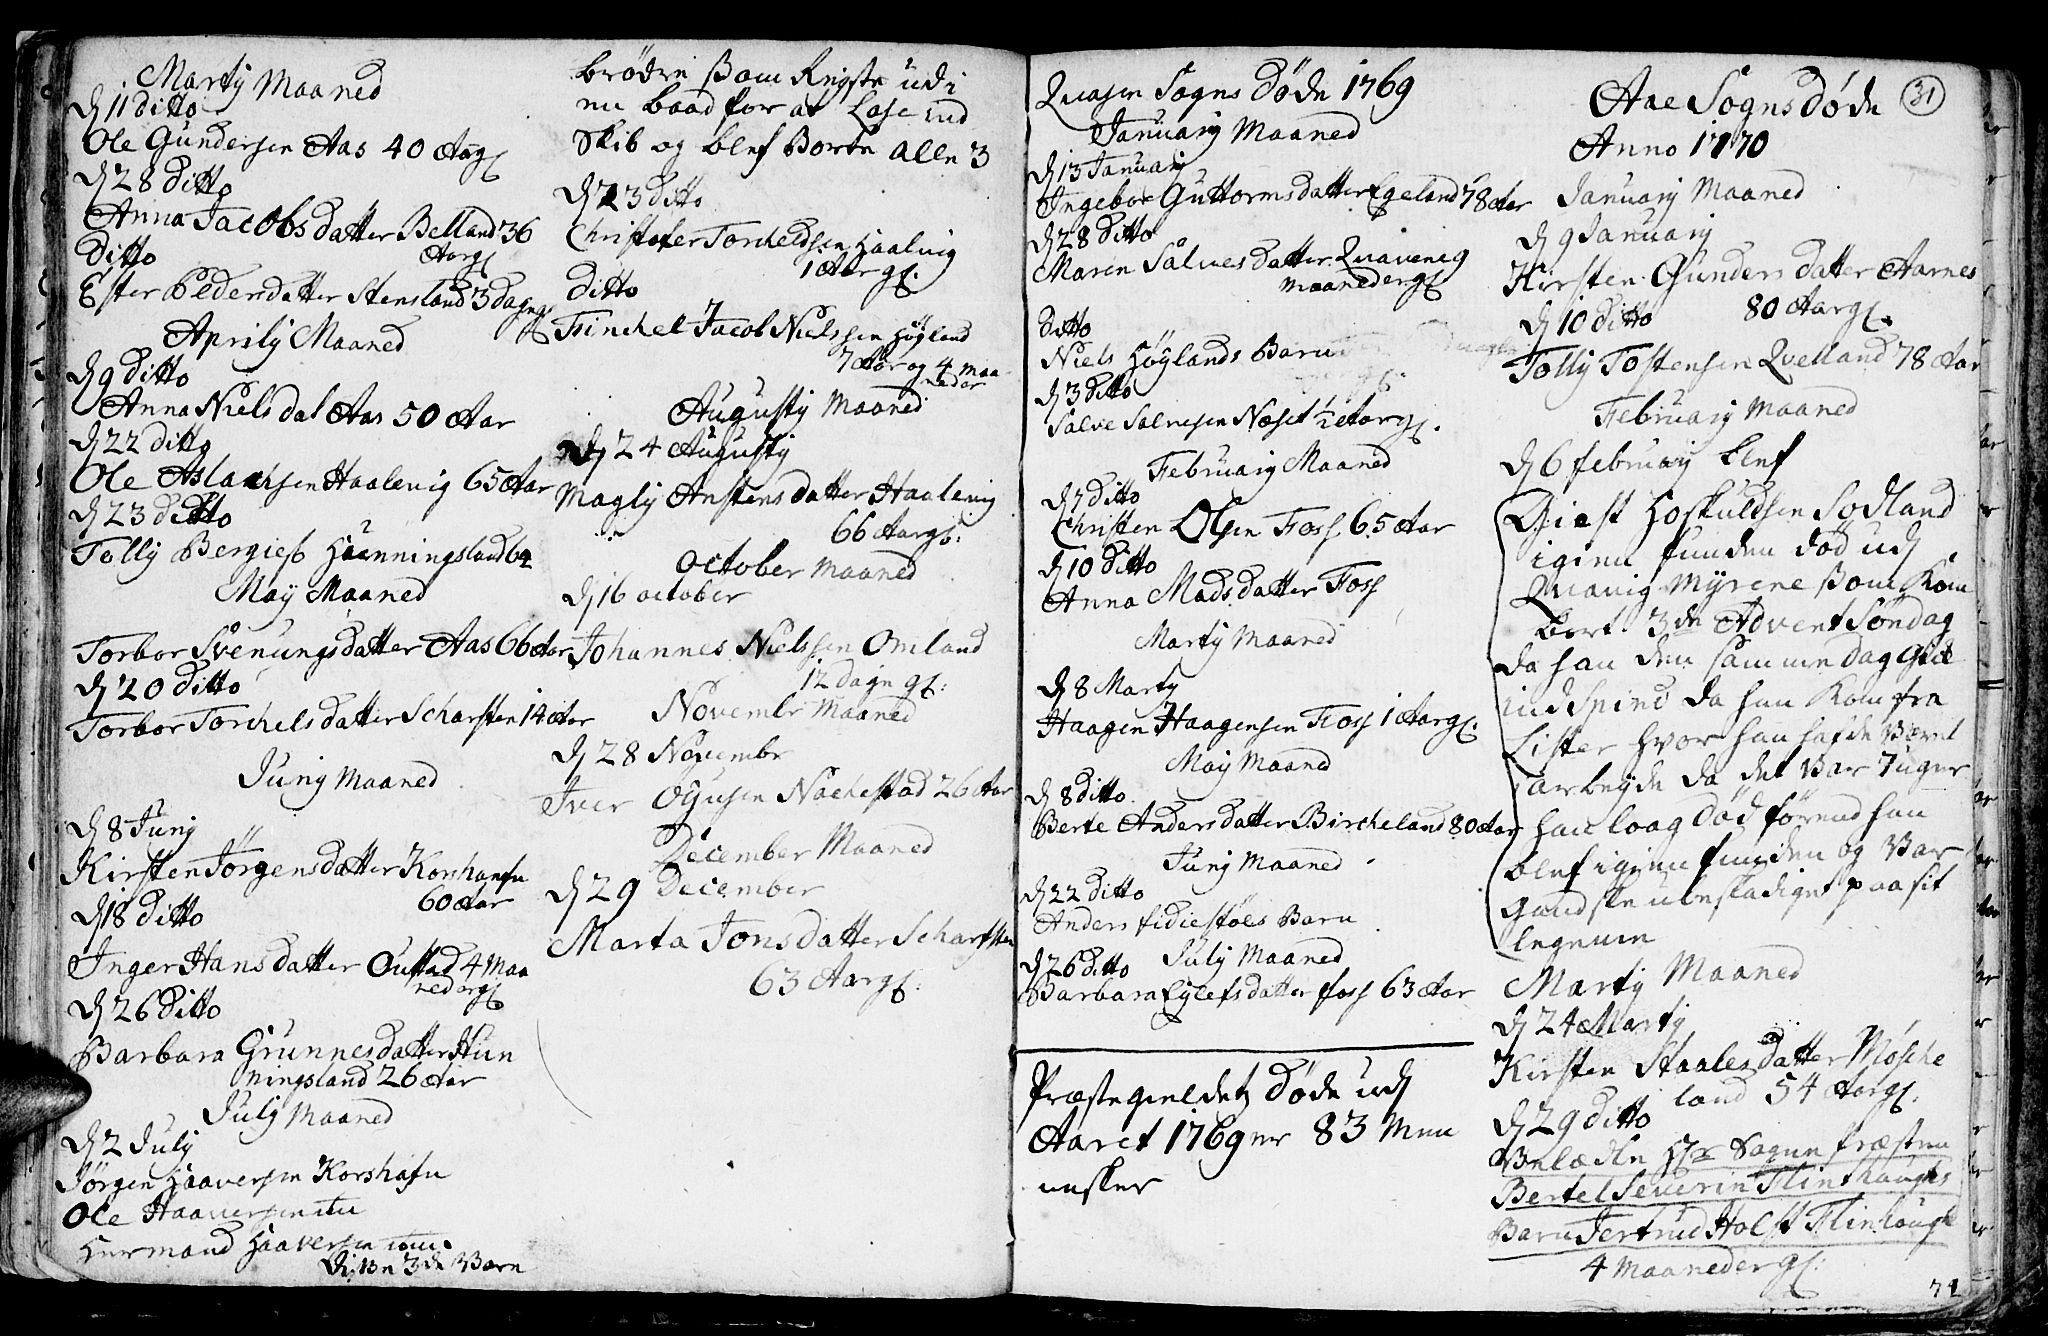 Martij Maaned
D 11 ditto
Ole Gundersen Aas 40 Aar gl
D 28 ditto
Anna Jacobs datter Belland 36
Aar gl
ditto
Ester Peders datter Stensland 3 dage gl
Aprilij Maaned
D 9 ditto
Anna Niels dat Aas 50 Aar
D 22 ditto
Ole Aslachsen Haalevig 65 Aar
D 23 ditto
Tollij Bergies Hunningsland 64
Maij Maaned
Torbor Svenungsdatter Aas 66 Aar
D 20 ditto
Torbor Torchelsdatter Scharsten 14 Aar
Junij Maaned
D 8 Junij
Kirsten Jörgensdatter Korshafn
60 Aar
D 18 ditto
Inger Hans datter Oustad 4 Maa
neder gl
D 26 ditto
Barbara Grunnesdatter Hun
ningsland 26 Aar
Julij Maaned
D 2 Julij
Jörgen Haaversen Korshafn
Ole Haaversen
Hermand Haaversen
Disse 3de Vare
brödre som Reyste ud i
en baad for at Lose ind
Skib og blef Borte alle 3
D 23 ditto
Christofer Torkeldsen Haalvig
1 Aar gl.
ditto
Tinchel Jacob Nielssen Höyland
7 Aar og 4 maa
neder
Augustij Maaned
D 24 Augustij
Maglij Anstens datter Haalevig
66 Aar gl:
October Maaned
D 16 october
Johannes Nielssen Omland
12 dage gl:
Novembr Maaned
D 28 Novembr
Iver Ogusen Nochestad 26 Aar
December Maaned
D 29 December
Marta Jons datter Scharsten
63 Aar gl:
Quasen Sogns Döde 1769
Januarij Maaned
D 13 Januarij
Ingebor Guttormsdatter Egeland 78 Aar
D 28 ditto
Maren Salves datter Quavenig
maaneder gl
ditto
Niels Höylands Barn
D 3 ditto
Salve Salvesen Næset 1/2 Aar gl.
Februarij Maaned
D 7 ditto
Christen Olsen Foss 65 Aar
D 10 ditto
Anna Mads datter Foss
Martij Maaned
D 8 Martij
Haagen Haagensen Foss 1 Aar gl.
Maij Maaned
D 8 ditto
Berte Anders datter Bircheland 80 Aar
Junij Maaned
D 22 ditto
Anders fidiestöes Barn
Julij Maaned
D 26 ditto
Barbara Eylefsdatter foss 63 Aar
Præstegieldetz Döde udj
Aaret 1769 er 83 Men
nesker
31
Aae Sogns döde
Anno 1770
Januarij Maaned
D 9 Januarij
Kirsten Gunders datter Aarnes
80 Aar gl.
D 10 ditto
Tollij Tostensen Qvelland 78 Aar
Februarij Maaned
D 6 februarij blef
Giest Hoskuldsen Sodland
igien funden död udj
Quavig Myrene som Kom
bort 3de Advent Söndag
da han den samme dag Gick
ind Spind da han Kom fra
Lister hvor han hafde Været
i arbeyde da det Var 7 uger
han laag Död förend han
blef igien funden og Var
Gandske ubeskadiget paa sit
legeme
Martij Maaned
D 24 Martij
Kirsten Staales datter Mösche
land 54 Aar gl.
D 29 ditto
Velædle Hr Sogne Præsten
Bertel Severin Flinthougs
Barn Jertrud Holst Flinhough
4 Maaneder gl: